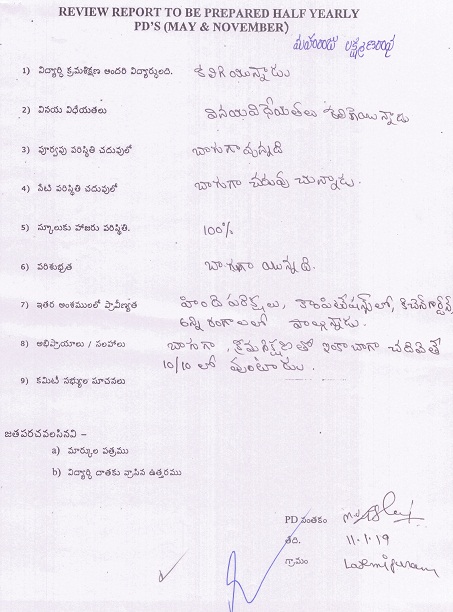 REVIEW REPORT TO BE PREPARED HALF YEARLY
PD'S (MAY & NOVEMBER)
1) విద్యార్థి క్రమశిక్షణ అందరి విద్యార్థులది. కలిగియున్నాడు
2) వినయ విధేయతలు వినయవిధేయతలు కలిగియున్నాడు
3) పూర్వపు పరిస్థితి చదువులో బాగుగావున్నది
4) నేటి పరిస్థితి చదువులో బాగుగా చదువు చున్నాడు.
5) స్కూలుకు హాజరు పరిస్థితి. 100%
6) పరిశుభ్రత బాగుగా యున్నది.
7) ఇతర అంశములలో ప్రావీణ్యత హింది పరీక్షలు, కాంపిటేషన్స్‌లో,
అన్ని రంగాలలో
8) అభిప్రాయాలు / సలహాలు బాగుగా, క్రమశిక్షణతో ఇంకా బాగా చదివితే
10/10 లో వుంటాడు.
9) కమిటీ సభ్యుల సూచనలు
జతపరచవలసినవి –
a) మార్కుల పత్రము
b) విద్యార్థి దాతకు వ్రాసిన ఉత్తరము
PD సంతకం
తేది. 11.1.19
గ్రామం Laxmipuram